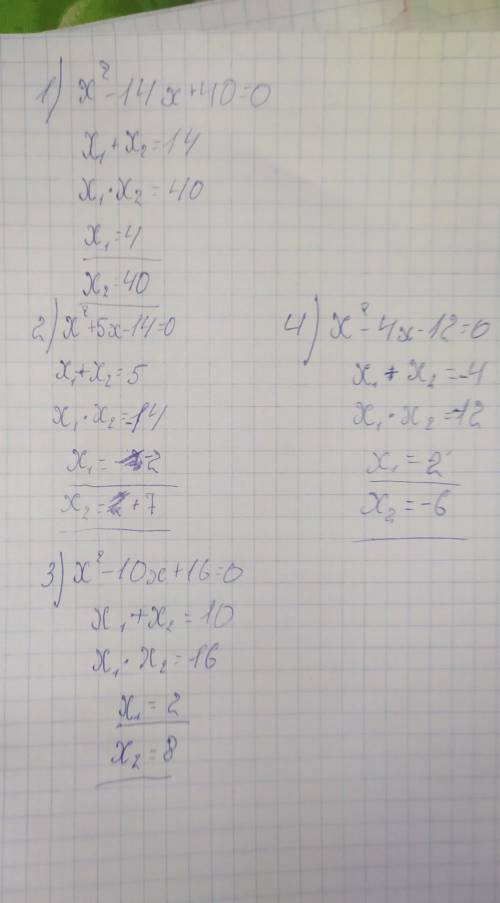 1) x² - 14x + 40 = 0
x₁ + x₂ = 14
x₁ · x₂ = 40
x₁ = 4
x₂ = 40
2) x² + 5x - 14 = 0
x₁ + x₂ = 5
x₁ · x₂ = -14
x₁ = -2
x₂ = +7
3) x² - 10x + 16 = 0
x₁ + x₂ = 10
x₁ · x₂ = 16
x₁ = 2
x₂ = 8
4) x² - 4x - 12 = 0
x₁ + x₂ = -4
x₁ · x₂ = -12
x₁ = 2
x₂ = -6